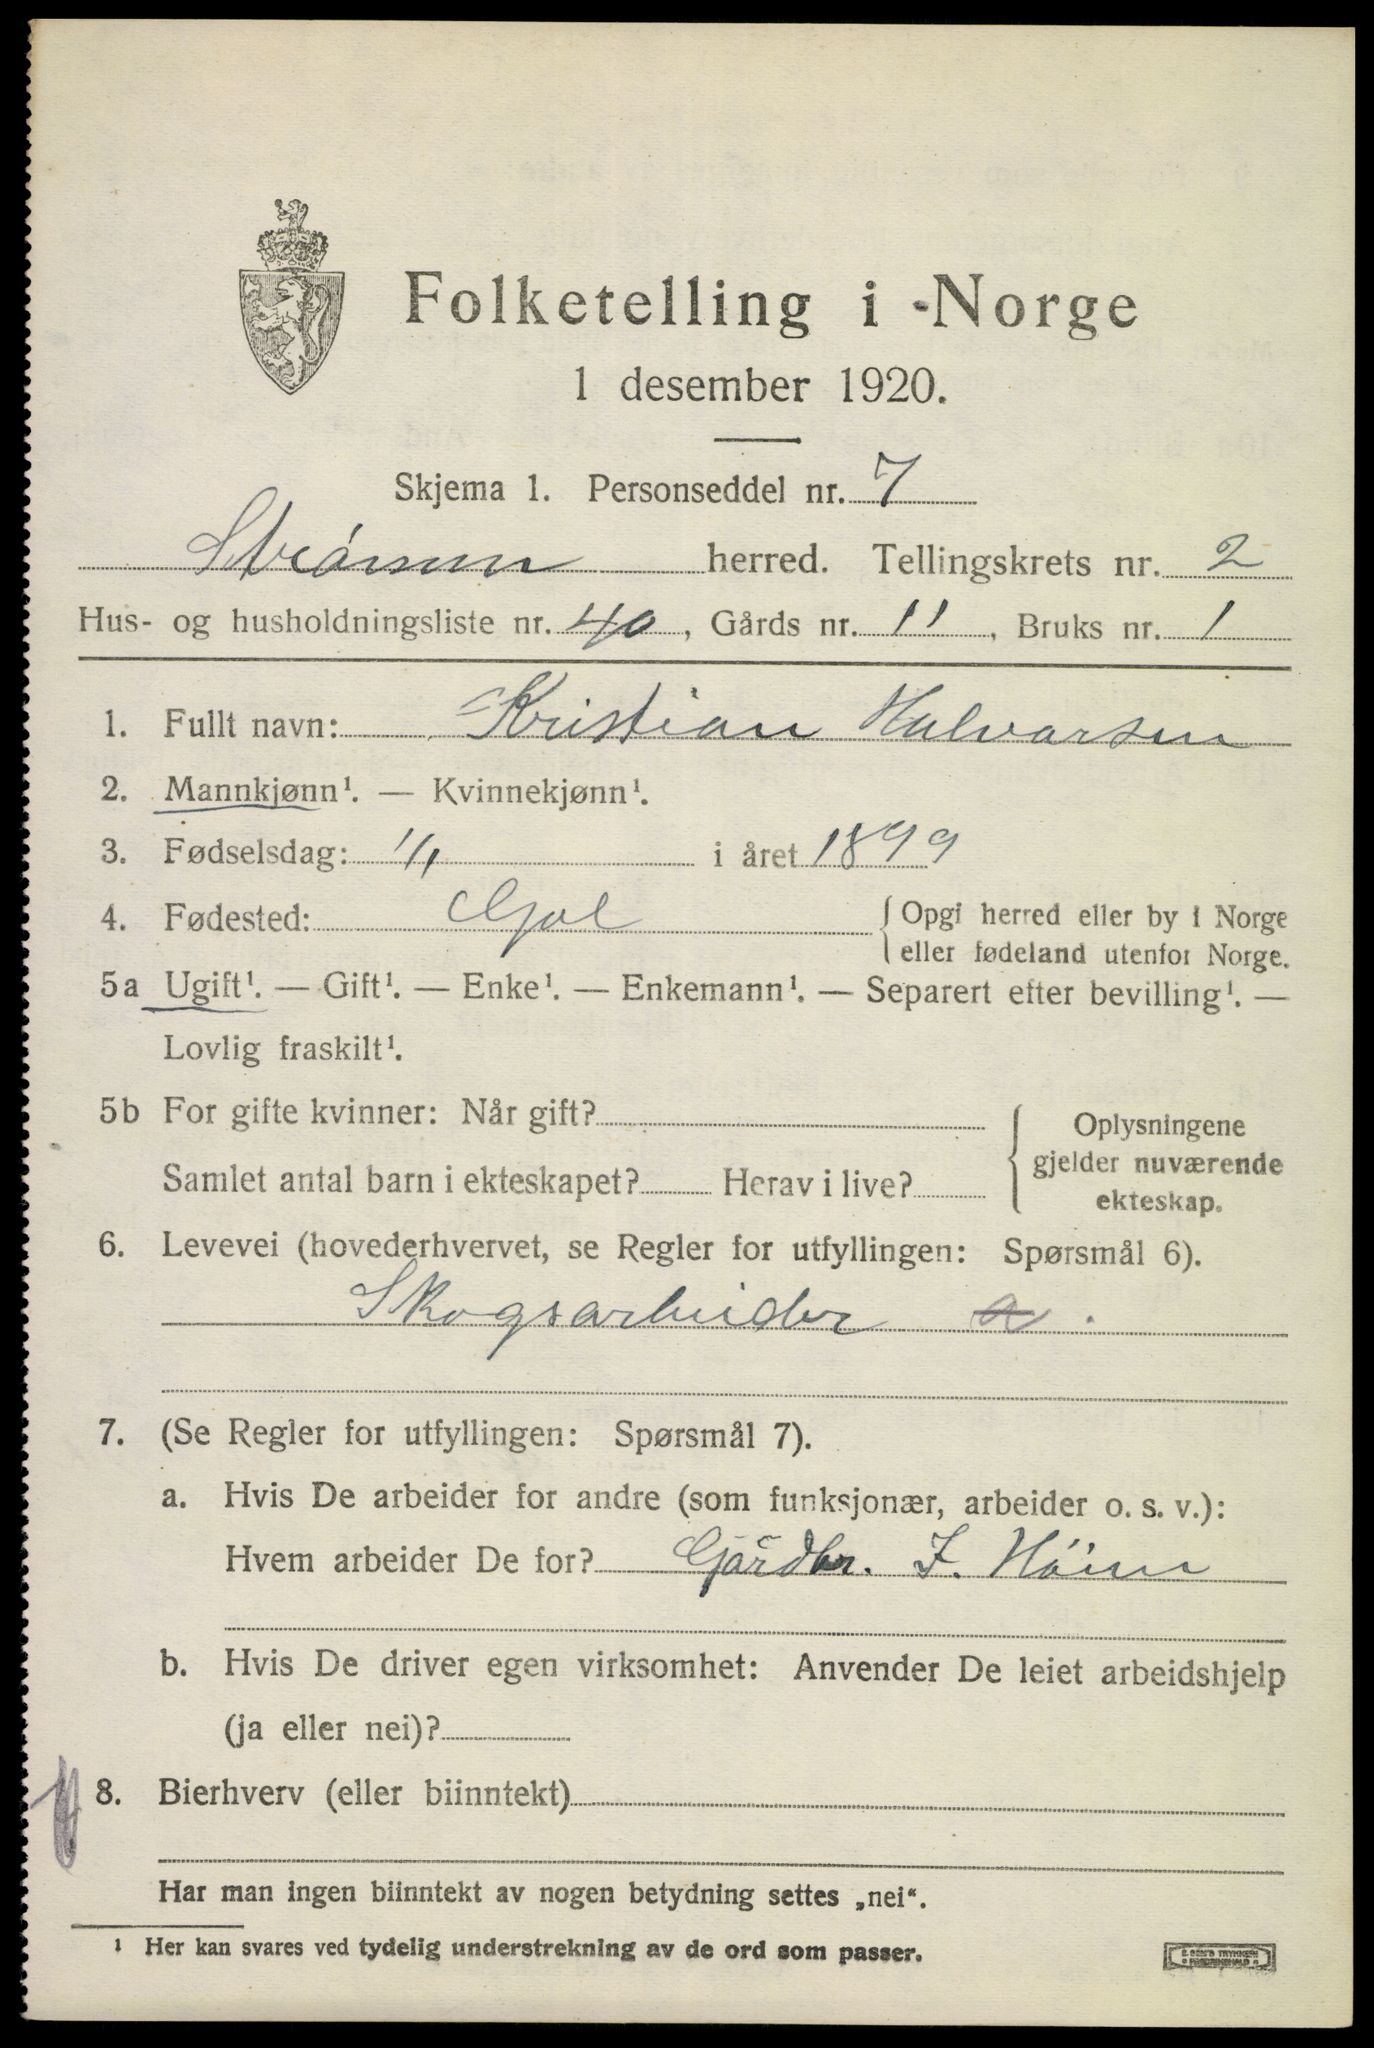 Folketelling i Norge
1 desember 1920.
Skjema 1. Personseddel nr. 7
Strømm herred. Tellingskrets nr. 2
Hus- og husholdningsliste nr. 40, Gårds nr. 11, Bruks nr. 1
1. Fullt navn: Kristian Halvorsen
2. Mannkjønn¹. — Kvinnekjønn¹.
3. Fødselsdag: 1/1 i året 1899
4. Fødested: Gol { Opgi herred eller by i Norge
eller fødeland utenfor Norge.
5a Ugift¹. — Gift¹. — Enke¹. — Enkemann¹. — Separert efter bevilling¹. —
Lovlig fraskilt¹.
5b For gifte kvinner: Når gift? { Oplysningene
gjelder nuværende
Samlet antal barn i ekteskapet? Herav i live? ekteskap.
6. Levevei (hovederhvervet, se Regler for utfyllingen: Spørsmål 6).
Skogsarbeider a.
7. (Se Regler for utfyllingen: Spørsmål 7).
a. Hvis De arbeider for andre (som funksjonær, arbeider o. s. v.):
Hvem arbeider De for? Gårdbr. I. Höien
b. Hvis De driver egen virksomhet: Anvender De leiet arbeidshjelp
(ja eller nei)?
8. Bierhverv (eller biinntekt)
Har man ingen biinntekt av nogen betydning settes „nei“.
¹ Her kan svares ved tydelig understrekning av de ord som passer.